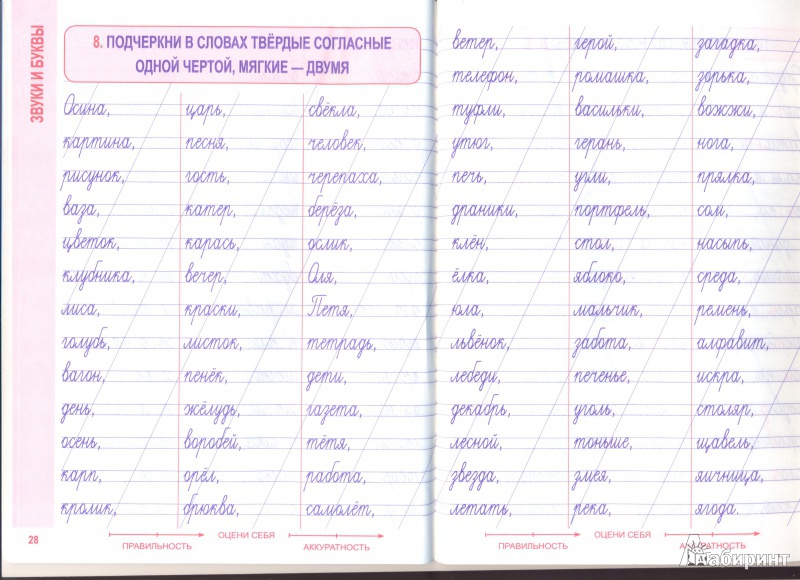 ЗВУКИ И БУКВЫ
8. ПОДЧЕРКНИ В СЛОВАХ ТВЁРДЫЕ СОГЛАСНЫЕ
ОДНОЙ ЧЕРТОЙ, МЯГКИЕ — ДВУМЯ
Осина, царь, свёкла,
картина, песня, человек,
рисунок, гость, черепаха,
ваза, катер, берёза,
цветок, карась, ослик,
клубника, вечер, Оля,
лиса, краски, Петя,
голубь, листок, тетрадь,
вагон, пенёк, дети,
день, жёлудь, газета,
осень, воробей, тётя,
карп, орёл, работа,
кролик, брюква, самолёт,
28
ПРАВИЛЬНОСТЬ ОЦЕНИ СЕБЯ АККУРАТНОСТЬ
ветер, герой, загадка,
телефон, ромашка, зорька,
туфли, васильки, вожжи,
утюг, герань, нога,
печь, угли, прялка,
драники, портфель, сом,
клён, стол, насыпь,
ёлка, яблоко, среда,
юла, мальчик, ремень,
львёнок, забота, алфавит,
лебеди, печенье, искра,
декабрь, уголь, столяр,
лесной, тоньше, щавель,
звезда, змея, яичница,
летать, река, ягода.
ПРАВИЛЬНОСТЬ ОЦЕНИ СЕБЯ АККУРАТНОСТЬ
Лабиринт